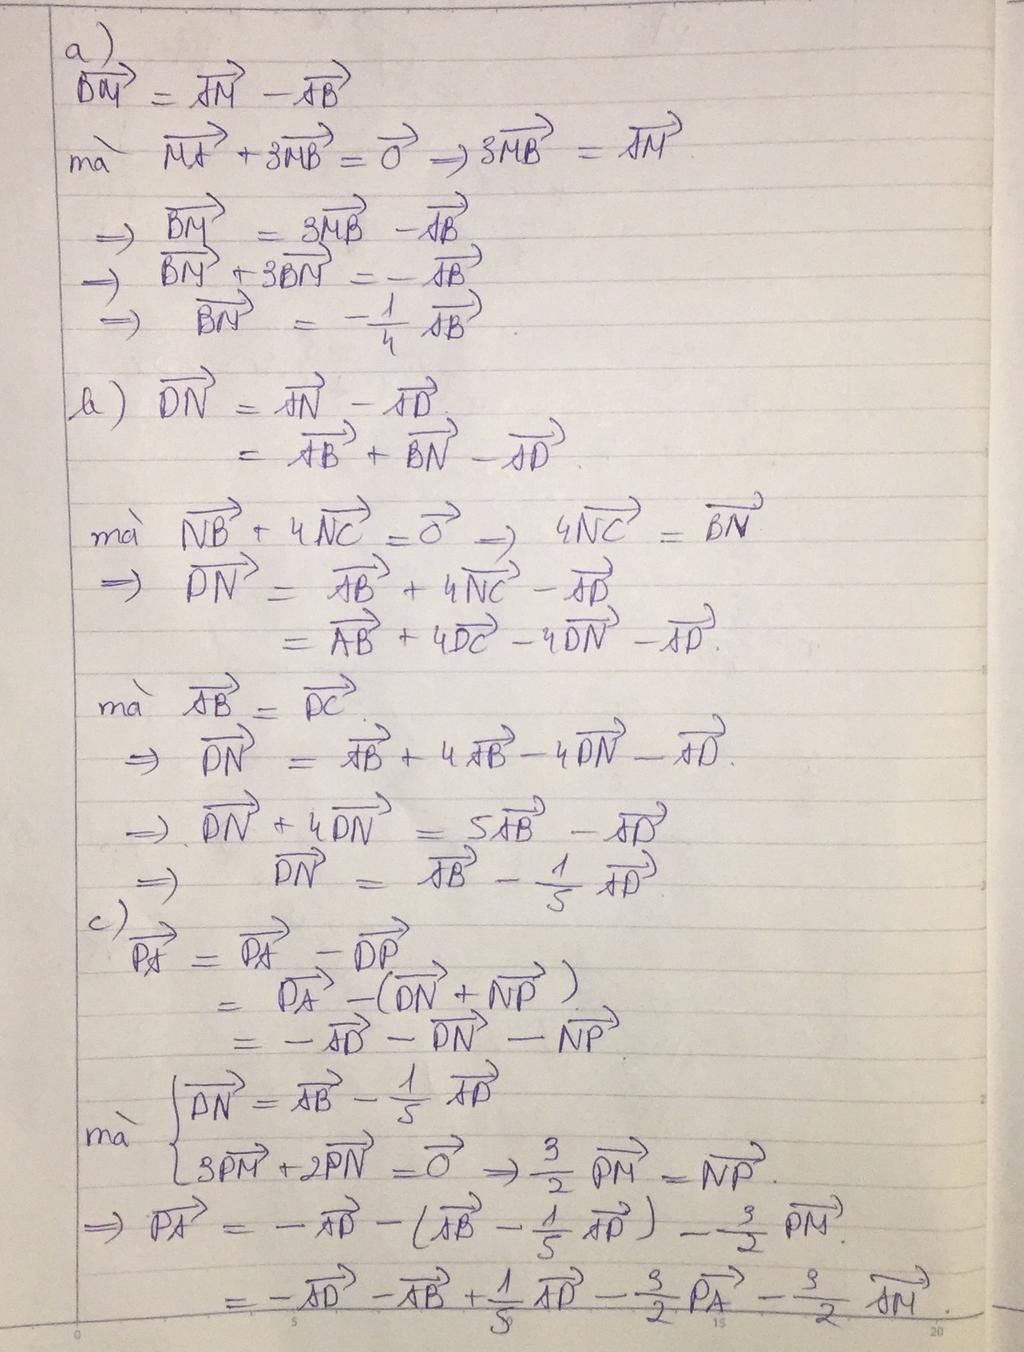 a)
$\overrightarrow{BM} = \overrightarrow{AM} - \overrightarrow{AB}$
mà $\overrightarrow{MA} + 3\overrightarrow{MB} = \overrightarrow{O} \Rightarrow 3\overrightarrow{MB} = \overrightarrow{AM}$
$\Rightarrow \overrightarrow{BM} = 3\overrightarrow{MB} - \overrightarrow{AB}$
$\Rightarrow \overrightarrow{BM} + 3\overrightarrow{BM} = -\overrightarrow{AB}$
$\Rightarrow \overrightarrow{BM} = -\frac{1}{4}\overrightarrow{AB}$.
b) $\overrightarrow{DN} = \overrightarrow{AN} - \overrightarrow{AD}$.
$= \overrightarrow{AB} + \overrightarrow{BN} - \overrightarrow{AD}$.
mà $\overrightarrow{NB} + 4\overrightarrow{NC} = \overrightarrow{O} \Rightarrow 4\overrightarrow{NC} = \overrightarrow{BN}$
$\Rightarrow \overrightarrow{DN} = \overrightarrow{AB} + 4\overrightarrow{NC} - \overrightarrow{AD}$
$= \overrightarrow{AB} + 4\overrightarrow{DC} - 4\overrightarrow{DN} - \overrightarrow{AD}$.
mà $\overrightarrow{AB} = \overrightarrow{DC}$.
$\Rightarrow \overrightarrow{DN} = \overrightarrow{AB} + 4\overrightarrow{AB} - 4\overrightarrow{DN} - \overrightarrow{AD}$.
$\Rightarrow \overrightarrow{DN} + 4\overrightarrow{DN} = 5\overrightarrow{AB} - \overrightarrow{AD}$
$\Rightarrow \overrightarrow{DN} = \overrightarrow{AB} - \frac{1}{5}\overrightarrow{AD}$
c)
$\overrightarrow{PA} = \overrightarrow{DA} - \overrightarrow{DP}$
$= \overrightarrow{DA} - (\overrightarrow{DN} + \overrightarrow{NP})$
$= -\overrightarrow{AD} - \overrightarrow{DN} - \overrightarrow{NP}$
mà $\begin{cases} \overrightarrow{DN} = \overrightarrow{AB} - \frac{1}{5}\overrightarrow{AD} \\ 3\overrightarrow{PM} + 2\overrightarrow{PN} = \overrightarrow{O} \Rightarrow \frac{3}{2}\overrightarrow{PM} = \overrightarrow{NP}. \end{cases}$
$\Rightarrow \overrightarrow{PA} = -\overrightarrow{AD} - (\overrightarrow{AB} - \frac{1}{5}\overrightarrow{AD}) - \frac{3}{2}\overrightarrow{PM}$.
$= -\overrightarrow{AD} - \overrightarrow{AB} + \frac{1}{5}\overrightarrow{AD} - \frac{3}{2}\overrightarrow{PA} - \frac{3}{2}\overrightarrow{AM}$.
0 5 15 20